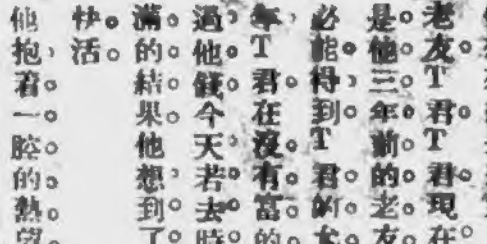 老友T君T君現在
是他三年前的老友
必能得到T君的
年，T君在沒有富的
過他錢今天若去時
滿的結果他想到了
快活
他抱着一腔的熱望